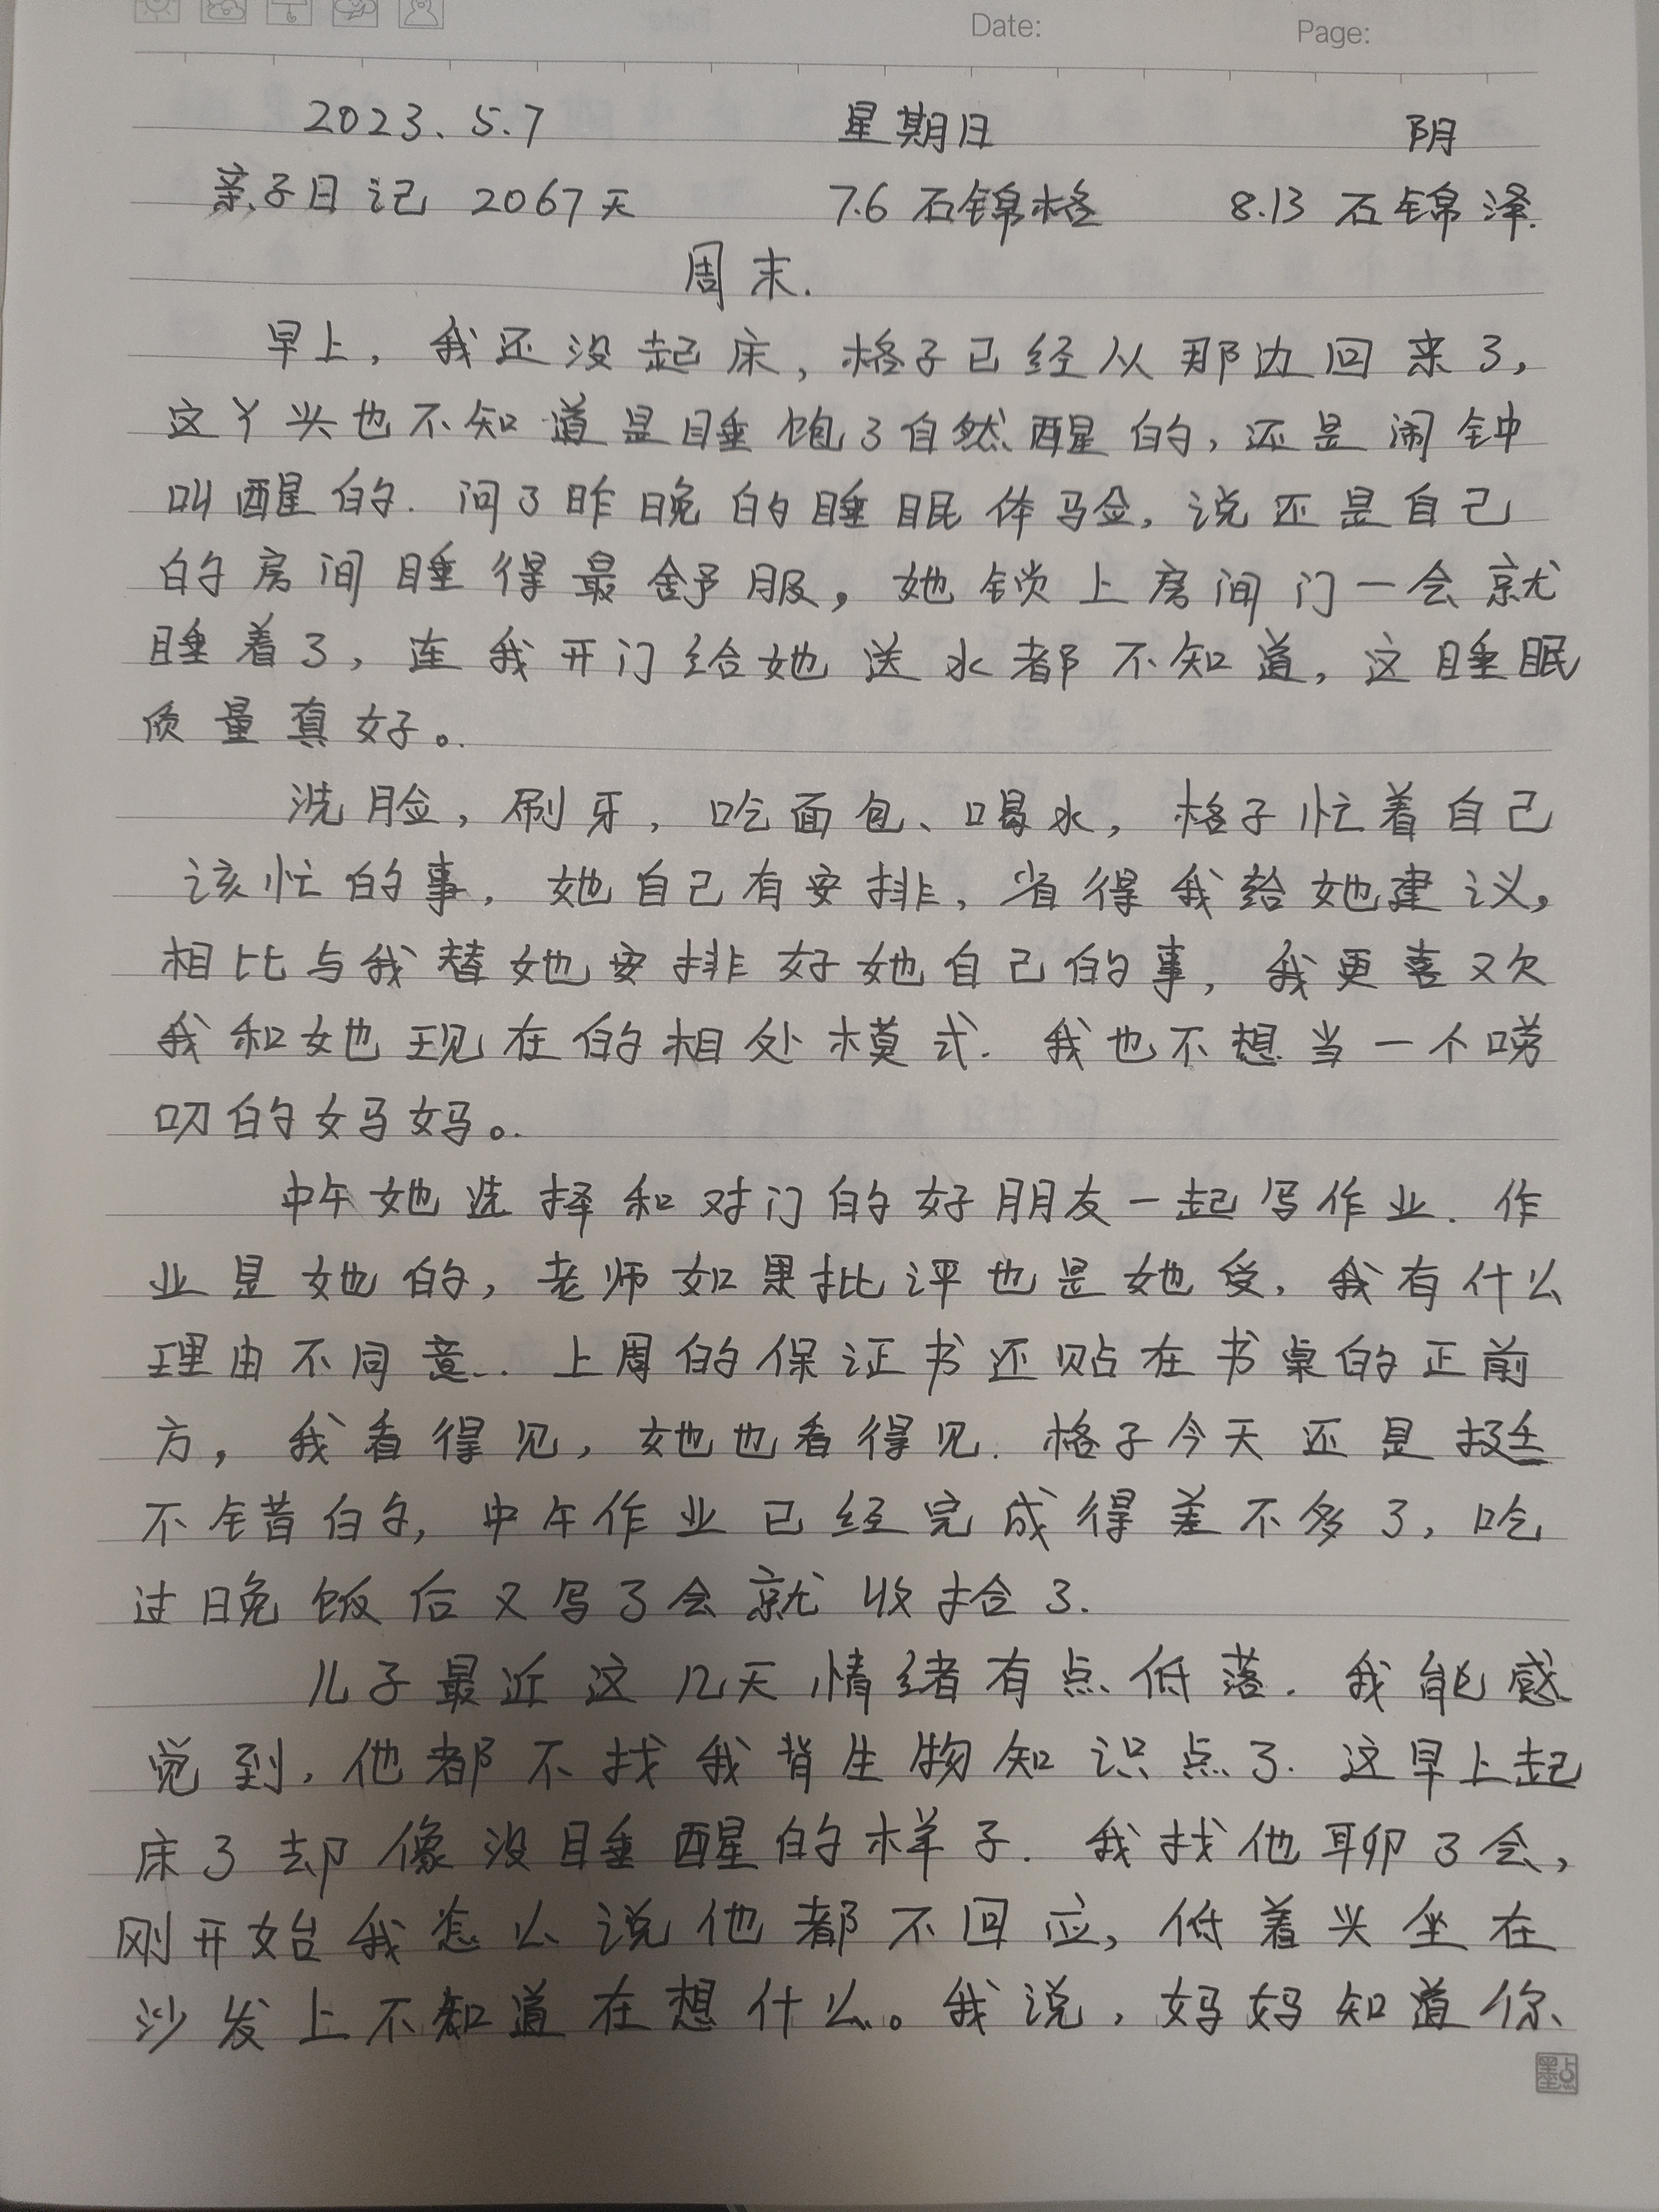 Date: Page:
2023.5.7 星期日 阴
亲子日记 2067天 7.6 石锦格 8.13 石锦泽.
周末.
早上，我还没起床，格子已经从那边回来了，
这丫头也不知道是睡饱了自然醒的，还是闹钟
叫醒的. 问了昨晚的睡眠体验，说还是自己
的房间睡得最舒服，她锁上房间门一会就
睡着了，连我开门给她送水都不知道，这睡眠
质量真好。
洗脸，刷牙，吃面包、喝水，格子忙着自己
该忙的事，她自己有安排，省得我给她建议，
相比与我替她安排好她自己的事，我更喜欢
我和她现在的相处模式. 我也不想当一个唠
叨的妈妈。
中午她选择和对门的好朋友一起写作业. 作
业是她的，老师如果批评也是她受，我有什么
理由不同意.. 上周的保证书还贴在书桌的正前
方，我看得见，她也看得见. 格子今天还是挺
不错的，中午作业已经完成得差不多了，吃
过晚饭后又写了会就收拾了.
儿子最近这几天情绪有点低落. 我能感
觉到，他都不找我背生物知识点了. 这早上起
床了却像没睡醒的样子. 我找他聊了会，
刚开始我怎么说他都不回应，低着头坐在
沙发上不知道在想什么。我说，妈妈知道你
墨点